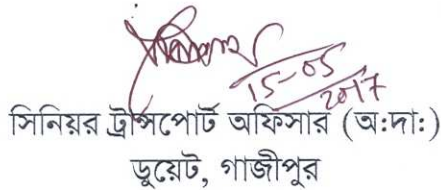 15-05
2017
সিনিয়র ট্রান্সপোর্ট অফিসার (অ:দা:)
ডুয়েট, গাজীপুর